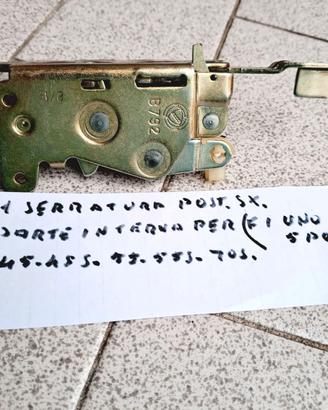 B/2
B792
1 SERRATURA POST. SX.
PORTE INTERNA PER (FI UNO
5PO
45. 455. 55. 555. 70S.